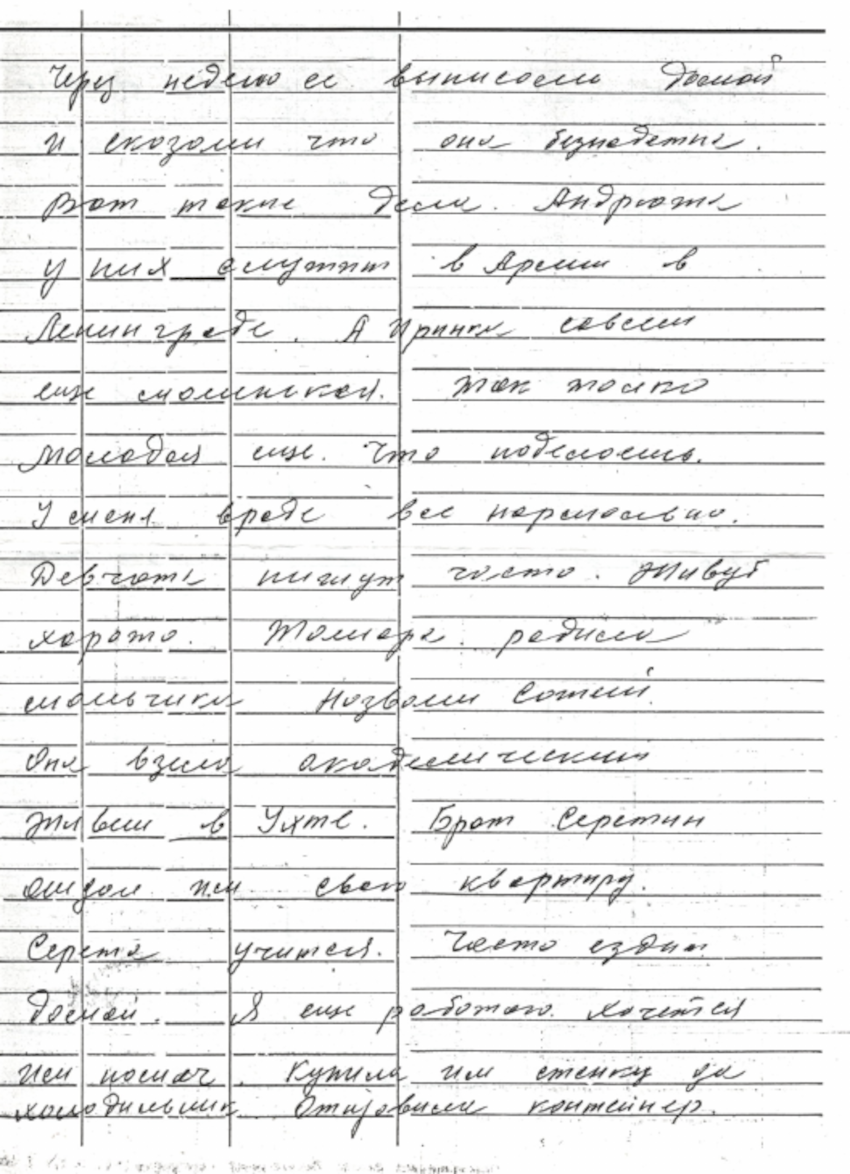 Через неделю ее выписали домой
и сказали что она безнадежна.
Вот такие дела. Андрюша
у них служит в Армии в
Ленинграде. А Иринка совсем
еще маленькая. Так толко
молодая еще. Что поделаешь.
У меня вроде все нормально.
Девчата пишут часто. Живут
хорошо. Тамара родила
мальчика Назвали Сашей.
Она взяла академический
Живет в Ухте. Брат Сережин
отдал им свою квартиру.
Сережа учится. Часто ездит
домой. Я еще работаю. Хочется
им помоч. Купила им стенку да
холодильник Отправила контейнер.